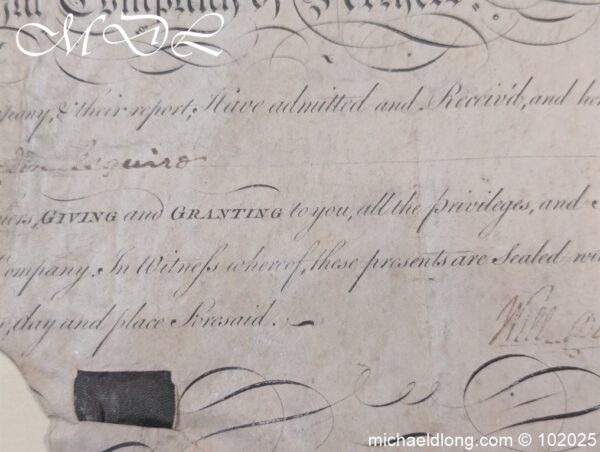 Company of Archers.
MDL
pany, & their report; Have admitted and Receiv'd, and her
Esquire
iers, GIVING and GRANTING to you, all the privileges, and
Company. In Witness whereof, these presents are Sealed wi
day and place Foresaid.
Will
michaeldlong.com © 102025